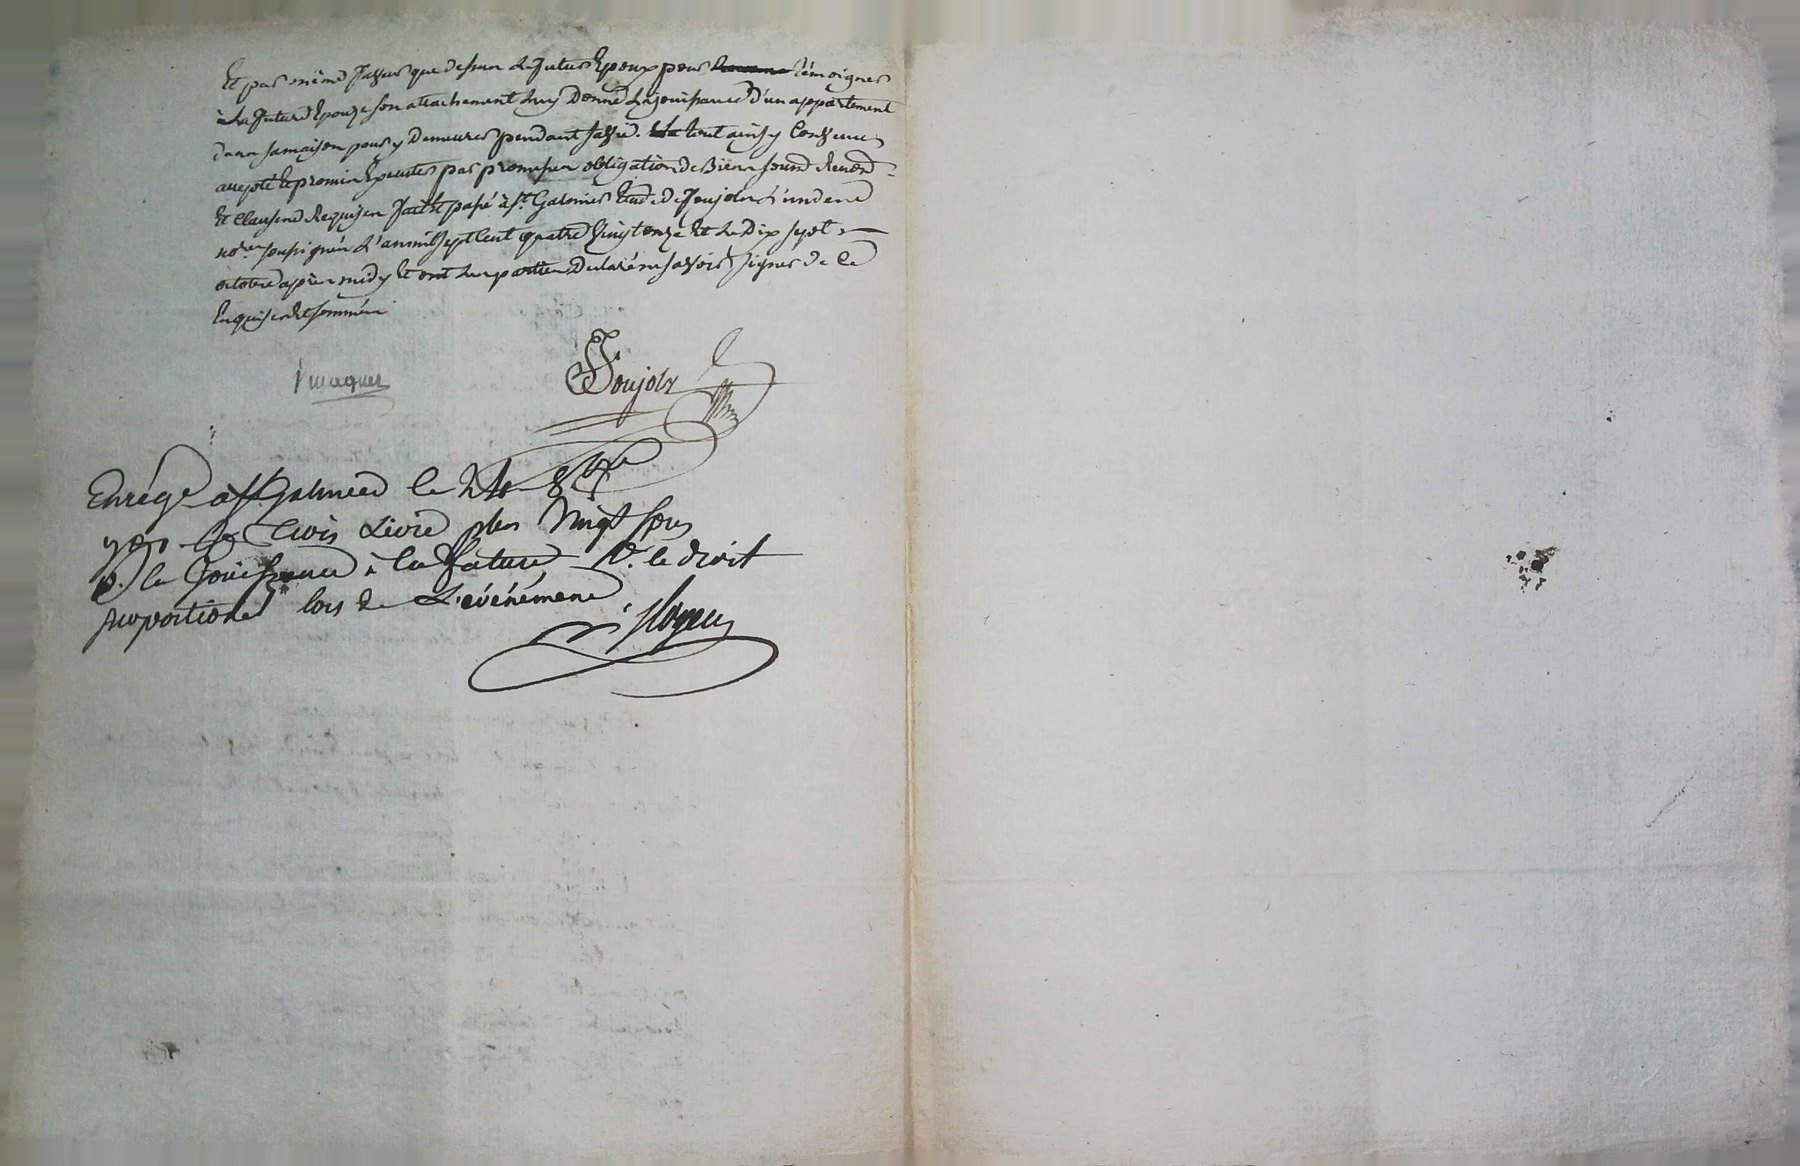 Et par même faveur que dessus le futur Epoux pour témoigner
à la future Epouze son attachement luy Donne la jouissance d'un appartement
dans sa maison pour y Demeurer pendant sa vie. Le tout ainsy Convenu
accepté Et promis Executer par promesses obligation de Biens soumo Renond
Et Clauses Requises fait Et passé à St. Galmier Etude de Joujoly l'un des
nores soussignés L'an mil sept Cent quatre Vingt onze Et Le Dix sept
octobre après midy Et ont les parties Declaré ne savoir signer de Ce
Enquises Et sommées
Joujoly
Enrege a St galmier le 24 8bre
1791 Re trois Livre plus Vingt sous
p. la Jouissance à la future Sf. le droit
proportionel lors de L'évènement